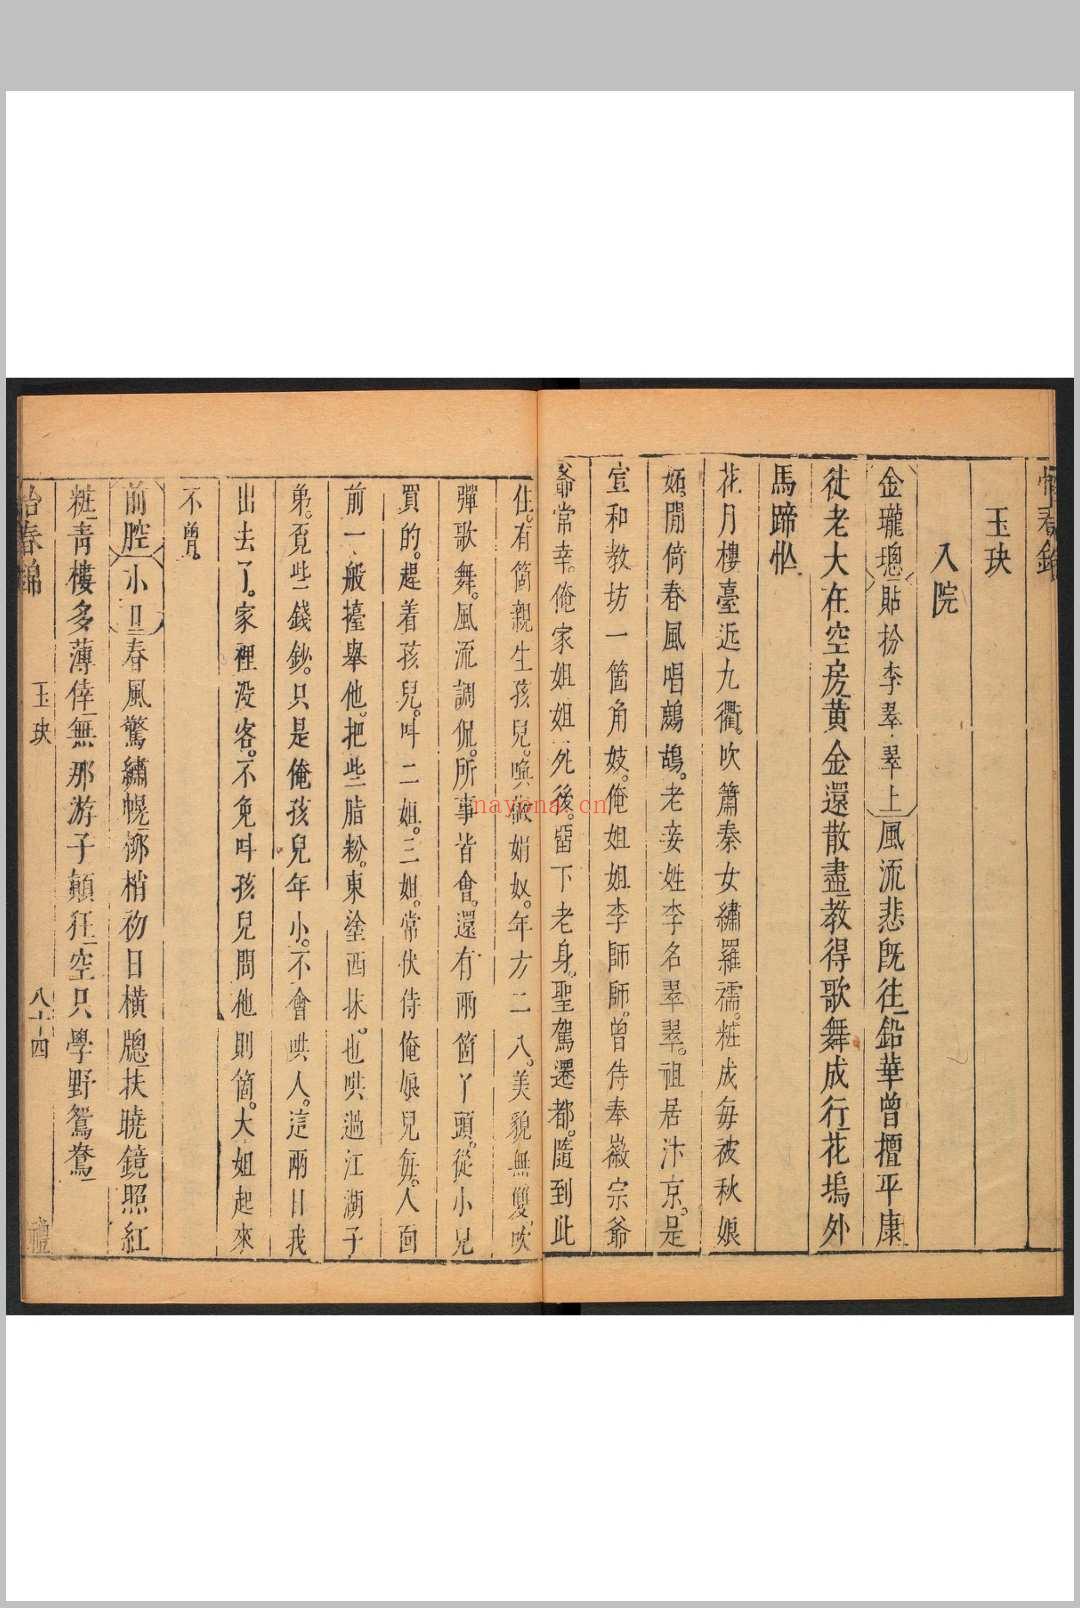 怡春錦
玉玦
入院
金瓏璁貼扮李翠翠上風流悲旣往鉛華曾擅平康
徒老大在空房黄金還散盡教得歌舞成行花塢外
馬蹄忙
花月樓臺近九衢。吹簫秦女繡羅襦。粧成每被秋娘
妬。閒倚春風唱鷓鴣。老妾姓李名翠翠。祖居汴京。是
宣和教坊一箇角妓。俺姐姐李師師。曾侍奉徽宗爺
爺常幸。俺家姐姐死後。留下老身。聖駕遷都。隨到此
住。有箇親生孩兒。喚做娟奴。年方二八。美貌無雙。吹
彈歌舞。風流調侃。所事皆會。還有兩箇丫頭。從小兒
買的。趕着孩兒。呌二姐。三姐。常伏侍俺娘兒每。人面
前一般擡舉他。把些脂粉。東塗西抹。也哄過江湖子
弟。覓些錢鈔。只是俺孩兒年小。不會哄人。這兩日我
出去了。家裡没客。不免呌孩兒問他則箇。大姐起來
不曾。
前腔小旦春風驚繡幌柳梢初日橫牕扶曉鏡照紅
粧青樓多薄倖無那游子顛狂空只學野鴛鴦
怡春錦 玉玦 八十四 禮
nayona.cn